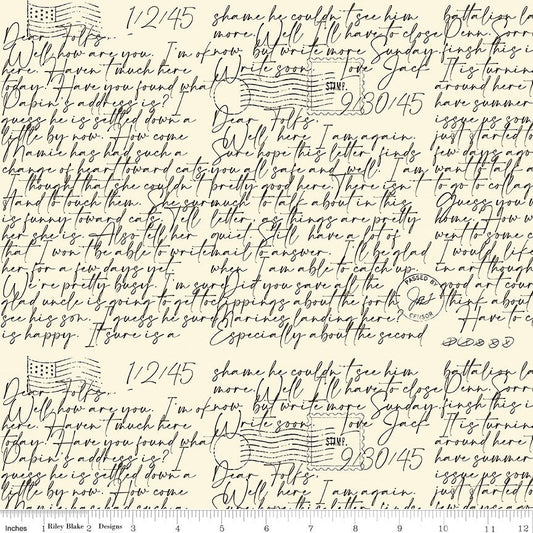 1/2/45
Dear Folks..
Well how are you. I'm of
here. Haven't much here
today. Have you found wha
Papin's address is?
guess he is settled down a
little by now. How come
Mamie has had such a
change of heart toward cats
I thought that she couldn't
stand to touch them. She sur
is funny toward cats. Tell
her she is. Also tell her
that I won't be able to write
her for a few days yet.
We're pretty busy. I'm sur
glad uncle is going to get to
see his son. I guess he sur
is happy. It sure is a
shame he couldn't see him
more. Well I'll have to close
now but write more Sunday.
Write soon. Love Jack
STAMP.
9/30/45
Dear Folks.
Well here I am again.
Sure hope this letter finds
you all safe and well. I am
pretty good here. There isn't
much to talk about in this
letter, as things are pretty
quiet. Still have a lot of
mail to answer. I'll be glad
when I am able to catch up.
Did you save all the
clippings about the forth
Marines landing here?
Especially about the second
battalion la
Denn. Sorr
finish this i
It is turnin
around here
have summer
issue us som
just started t
few days ago
want to talk a
to go to colla
Guess you w
home. How w
went to some c
I would lik
in art though
good art cour
think about
Have to c
PASSED BY
CENSOR
1/2/45
Dear Folks..
Well how are you. I'm of
here. Haven't much here
today. Have you found wha
Papin's address is?
guess he is settled down a
little by now. How come
Mamie has had such a
shame he couldn't see him
more. Well I'll have to close
now but write more Sunday.
Write soon. Love Jack
STAMP.
9/30/45
Dear Folks.
Well here I am again.
battalion la
Denn. Sorr
finish this i
It is turnin
around here
have summer
issue us som
just started t
few days ago
Inches 1 Riley Blake 2 Designs 3 4 5 6 7 8 9 10 11 12